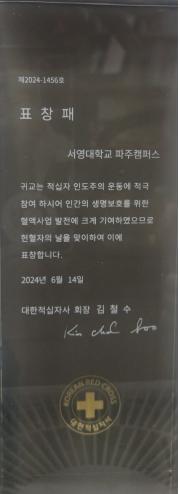 제2024-1456호
표 창 패
서영대학교 파주캠퍼스
귀교는 적십자 인도주의 운동에 적극
참여 하시어 인간의 생명보호를 위한
혈액사업 발전에 크게 기여하였으므로
헌혈자의 날을 맞이하여 이에
표창합니다.
2024년 6월 14일
대한적십자사 회장 김 철 수
Kim chul soo
KOREAN RED CROSS
대한적십자사